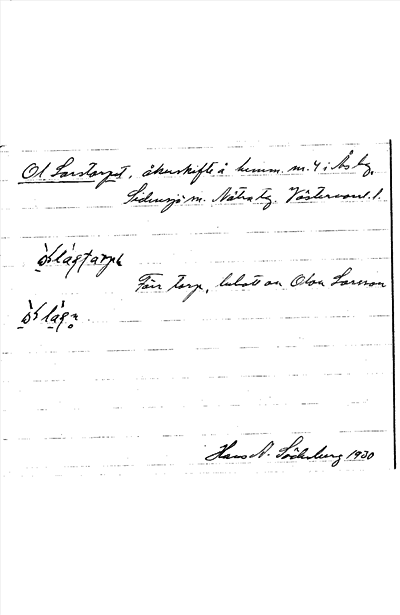 Ol Larstorpet, åkerskifte å hemm. nr. 4 i Ås by,
Sidensjö sn. Nätra tg. Västernorrl. l.
Förr torp, bebott av Olov Larsson
Hans A. Söderberg 1930